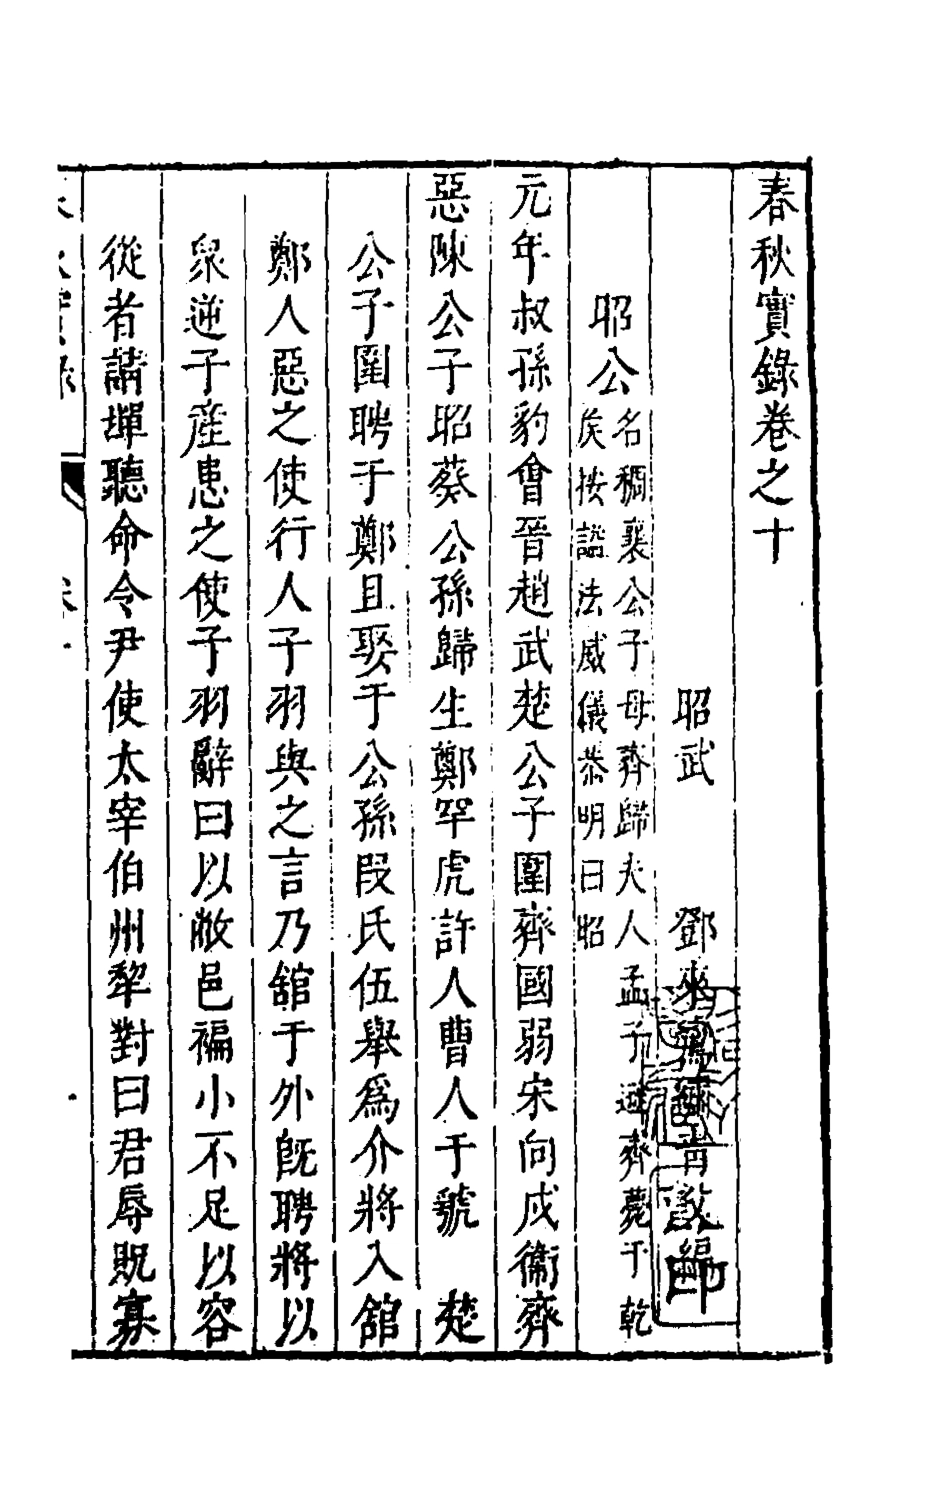 春秋實錄卷之十
昭武　鄧來鸞繡青父編
昭公名稠襄公子母齊歸夫人孟子遜齊薨于乾
矦按諡法威儀恭明曰昭
元年叔孫豹會晉趙武楚公子圍齊國弱宋向戌衞齊
惡陳公子昭蔡公孫歸生鄭罕虎許人曹人于虢　楚
公子圍聘于鄭且娶于公孫段氏伍舉爲介將入舘
鄭人惡之使行人子羽與之言乃舘于外旣聘將以
衆逆子産患之使子羽辭曰以敝邑褊小不足以容
從者請墠聽命令尹使太宰伯州犂對曰君辱貺寡